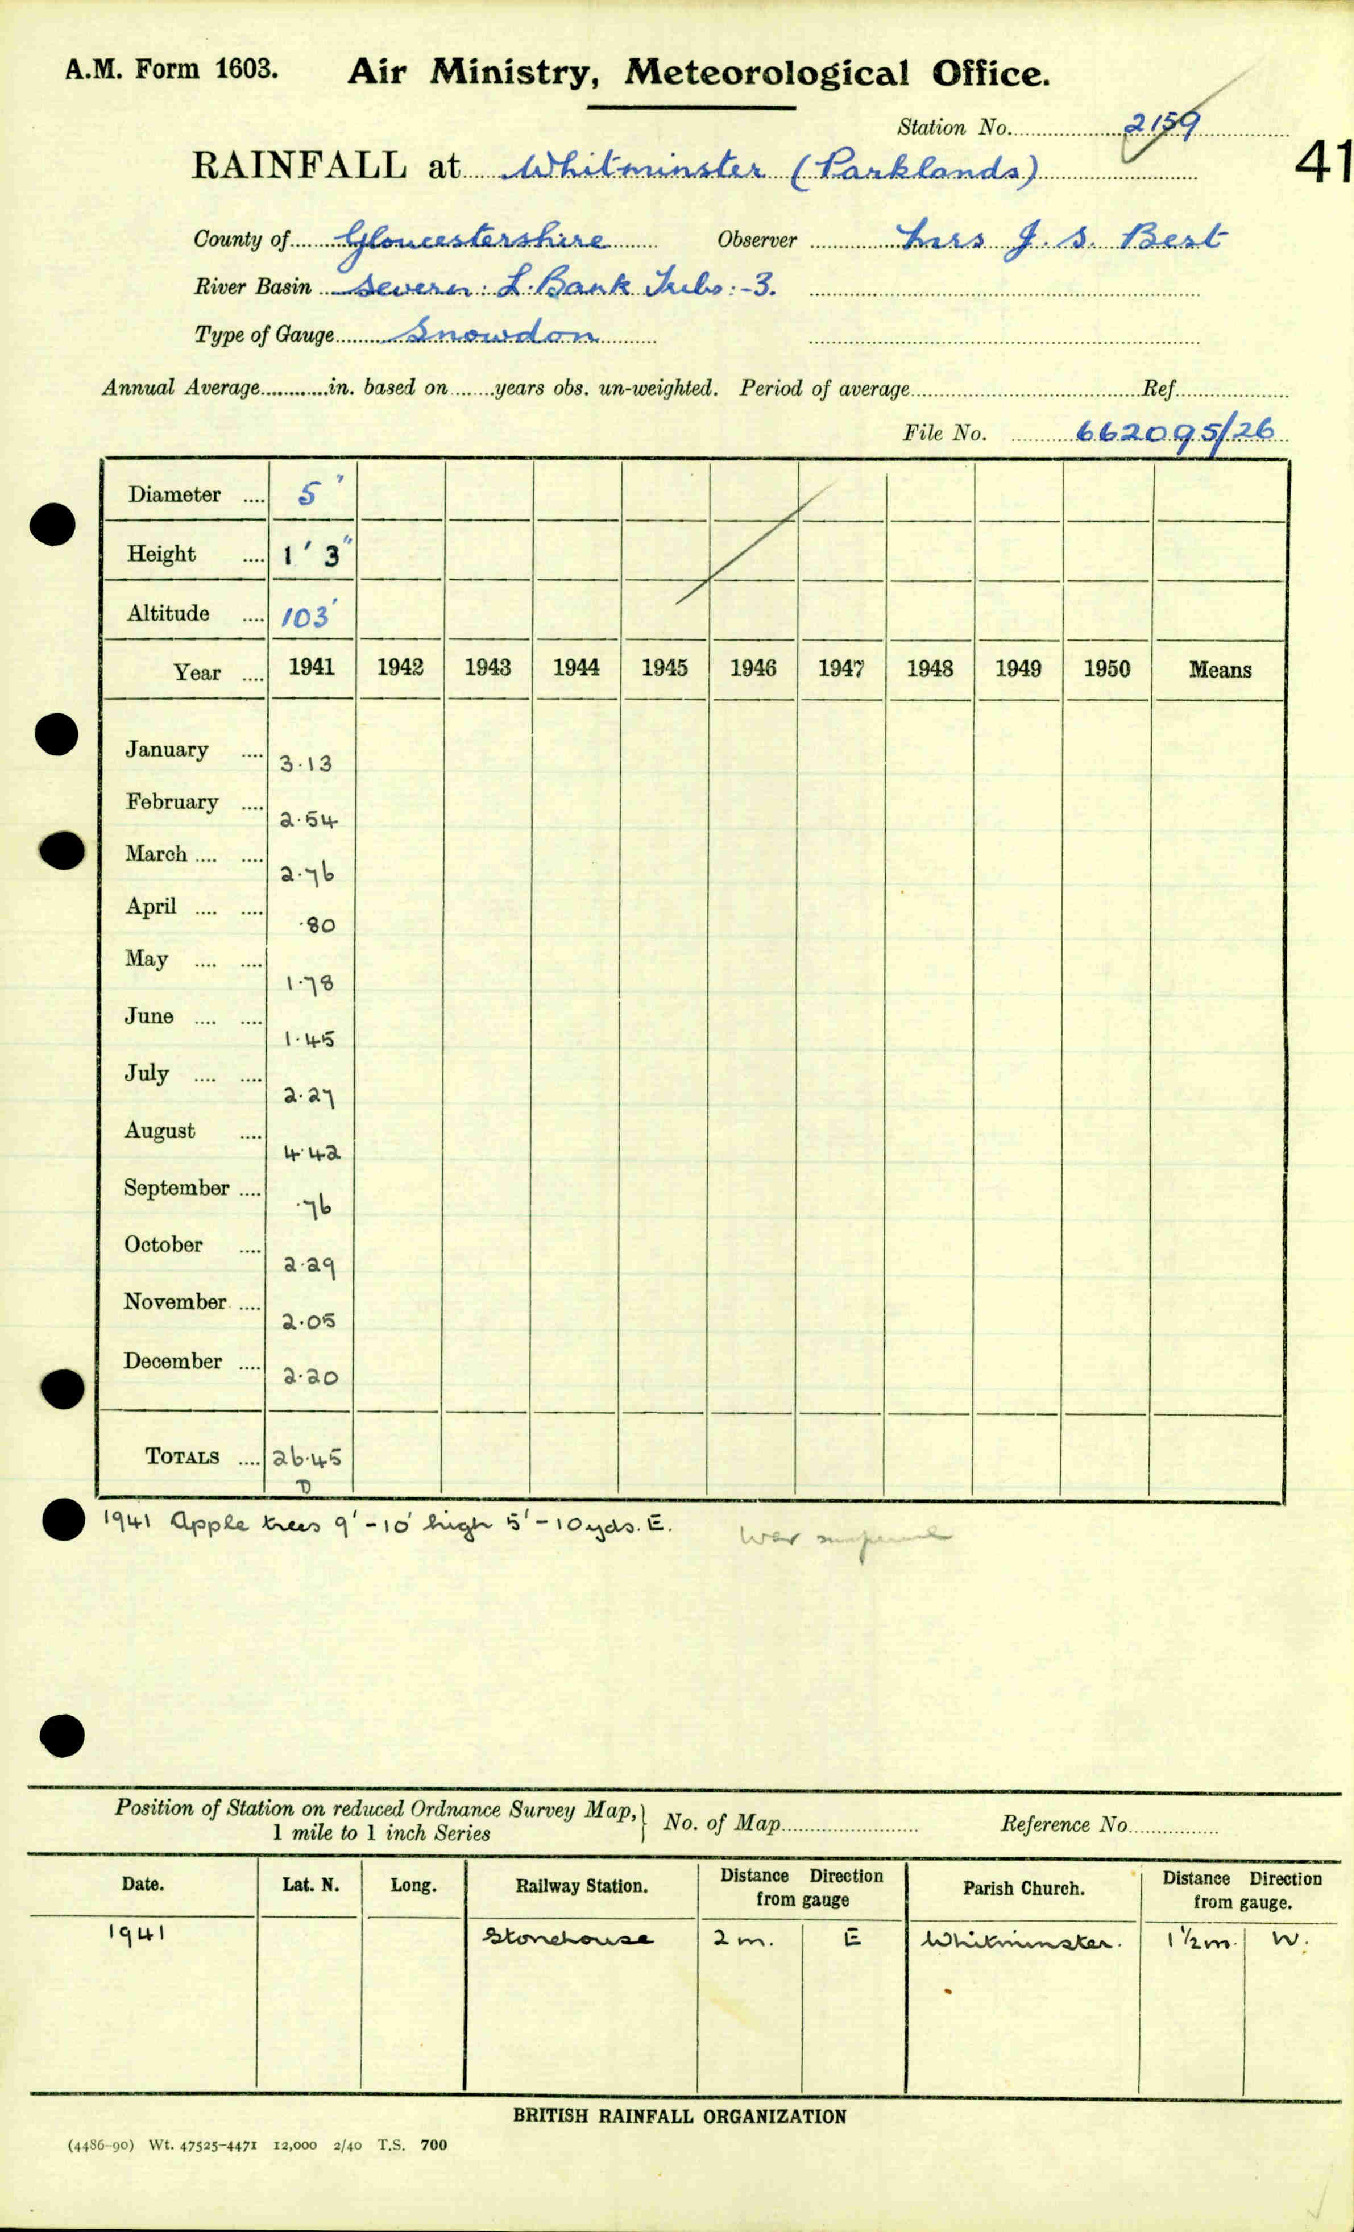 A.M. Form 1603. Air Ministry, Meteorological Office.
Station No. 2159
41
RAINFALL at Whitminster (Parklands)
County of Gloucestershire Observer Mrs J. S. Best
River Basin Severn: L. Bank Tribs:-3.
Type of Gauge Snowdon
Annual Average............in. based on........years obs. un-weighted. Period of average........ Ref........
File No. 662095/26
Diameter .... 5"
Height .... 1' 3"
Altitude .... 103'
Year .... 1941 1942 1943 1944 1945 1946 1947 1948 1949 1950 Means
January .... 3.13
February .... 2.54
March .... .... 2.76
April .... .... .80
May .... .... 1.78
June .... .... 1.45
July .... .... 2.27
August .... 4.42
September .... .76
October .... 2.29
November .... 2.05
December .... 2.20
TOTALS .... 26.45
D
1941 Apple trees 9'-10' high 5'-10yds. E. War
Position of Station on reduced Ordnance Survey Map, } No. of Map........ Reference No........
1 mile to 1 inch Series
Date. Lat. N. Long. Railway Station. Distance Direction from gauge Parish Church. Distance Direction from gauge.
1941 Stonehouse 2 m. E Whitminster. 1½m. W.
BRITISH RAINFALL ORGANIZATION
(4486-90) Wt. 47525-4471 12,000 2/40 T.S. 700